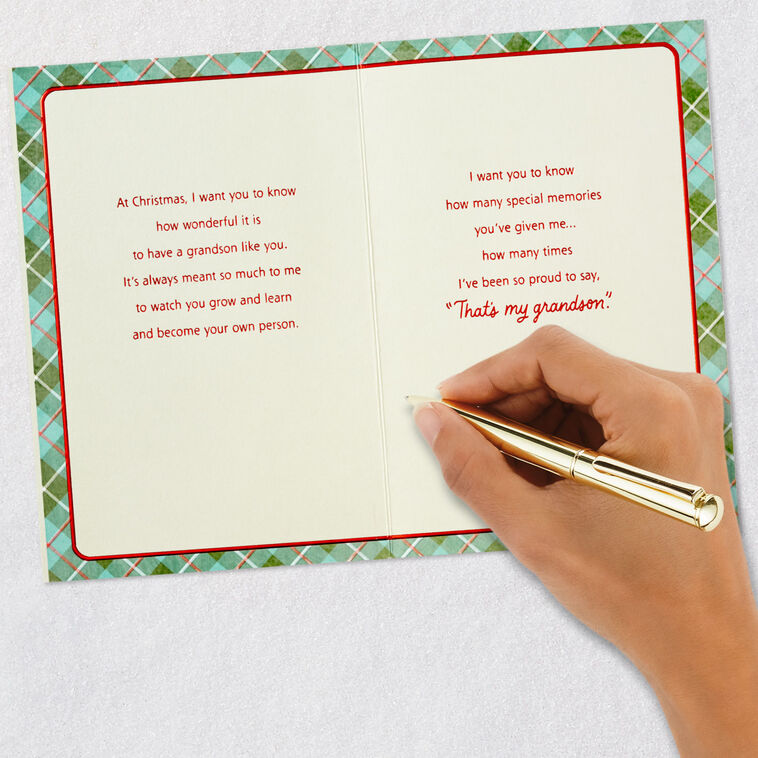 At Christmas, I want you to know
how wonderful it is
to have a grandson like you.
It's always meant so much to me
to watch you grow and learn
and become your own person.
I want you to know
how many special memories
you've given me...
how many times
I've been so proud to say,
"That's my grandson."